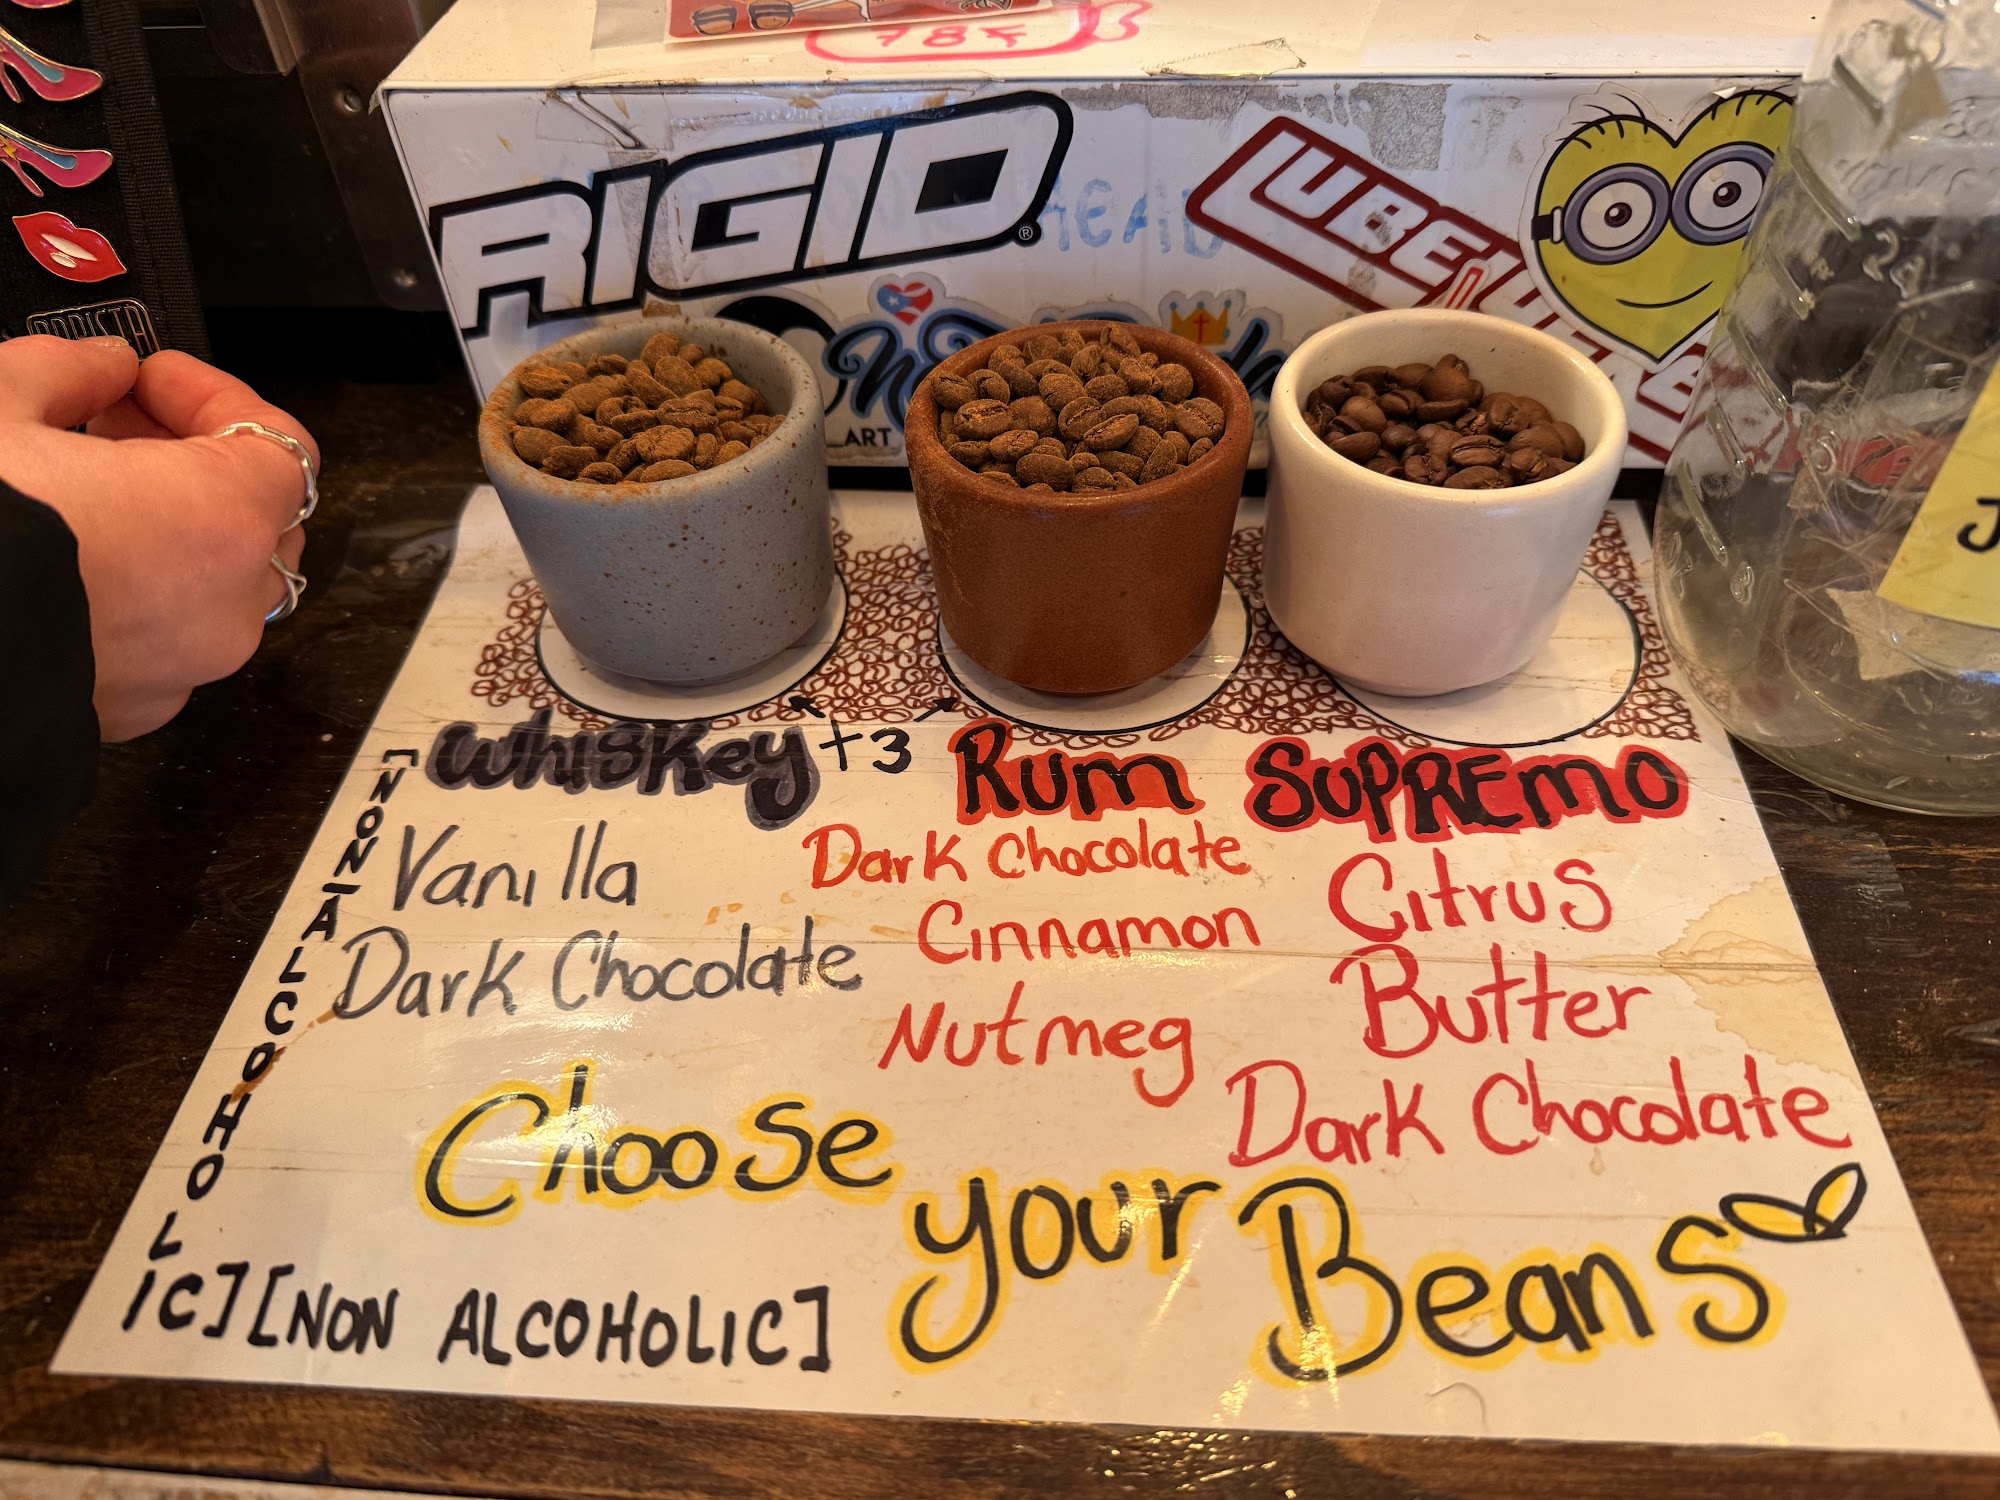 787
RIGID
®
HEAD
LUBE
ART
BARISTA
J
Whiskey +3 Rum Supremo
Vanilla
Dark Chocolate
Dark Chocolate
Cinnamon
Nutmeg
Citrus
Butter
Dark Chocolate
Choose your Beans
[NON-ALCOHOLIC]
[NON ALCOHOLIC]